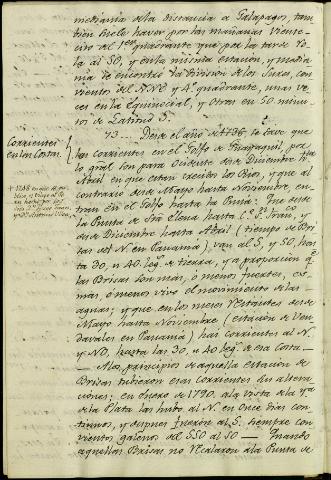 mediania de la distancia a Galapagos, tam
bien suele haver por las mañanas viente
cito del 1er quadrante que por la tarde ro
la al SO, y en la misma estacion, y media
nia se encontró la division de los Sures, con
vientos del NNE y 4º quadrante, unas ve
ces en la Equinocial, y otras en 50 minu
tos de Latitud S.
Corrientes
en las Costas
73.. Desde el año de 1736 se save que
las corrientes en el Golfo de Guayaquil, por
lo gral son para Occidente desde Diciembre hta
Abril en que estan crecidos los Rios, y que al
contrario desde Mayo hasta Noviembre, en
tran en el Golfo hasta la Puná: Que desde
la Punta de Sta Elena hasta Co Sn Franco, y
desde Diciembre hasta Abril (tiempo de Bri
sas del N. en Panamá) van al S, y SO, has
ta 30, u 40 legs de tierra, y a proporcion qe
las Brisas son mas, ó menos fuertes, es
mas, ó menos vivo el movimiento de las
aguas; y que en los meses restantes desde
Mayo hasta Noviembre (estacion de Ven
davales en Panamá) hai corrientes al N.
y NO, hasta las 30, u 40 legs de esa Costa.
A los principios de aquella estacion de
Brisas tubieron esas corrientes sus alterna
ciones; en Enero de 1790 a la vista de la Ya
de la Plata las hubo al N. en once dias con
tinuos, y despues fueron al S. siempre con
vientos galenos del SSO al SO — Quando
aquellas Brisas no recalaron a la Punta de